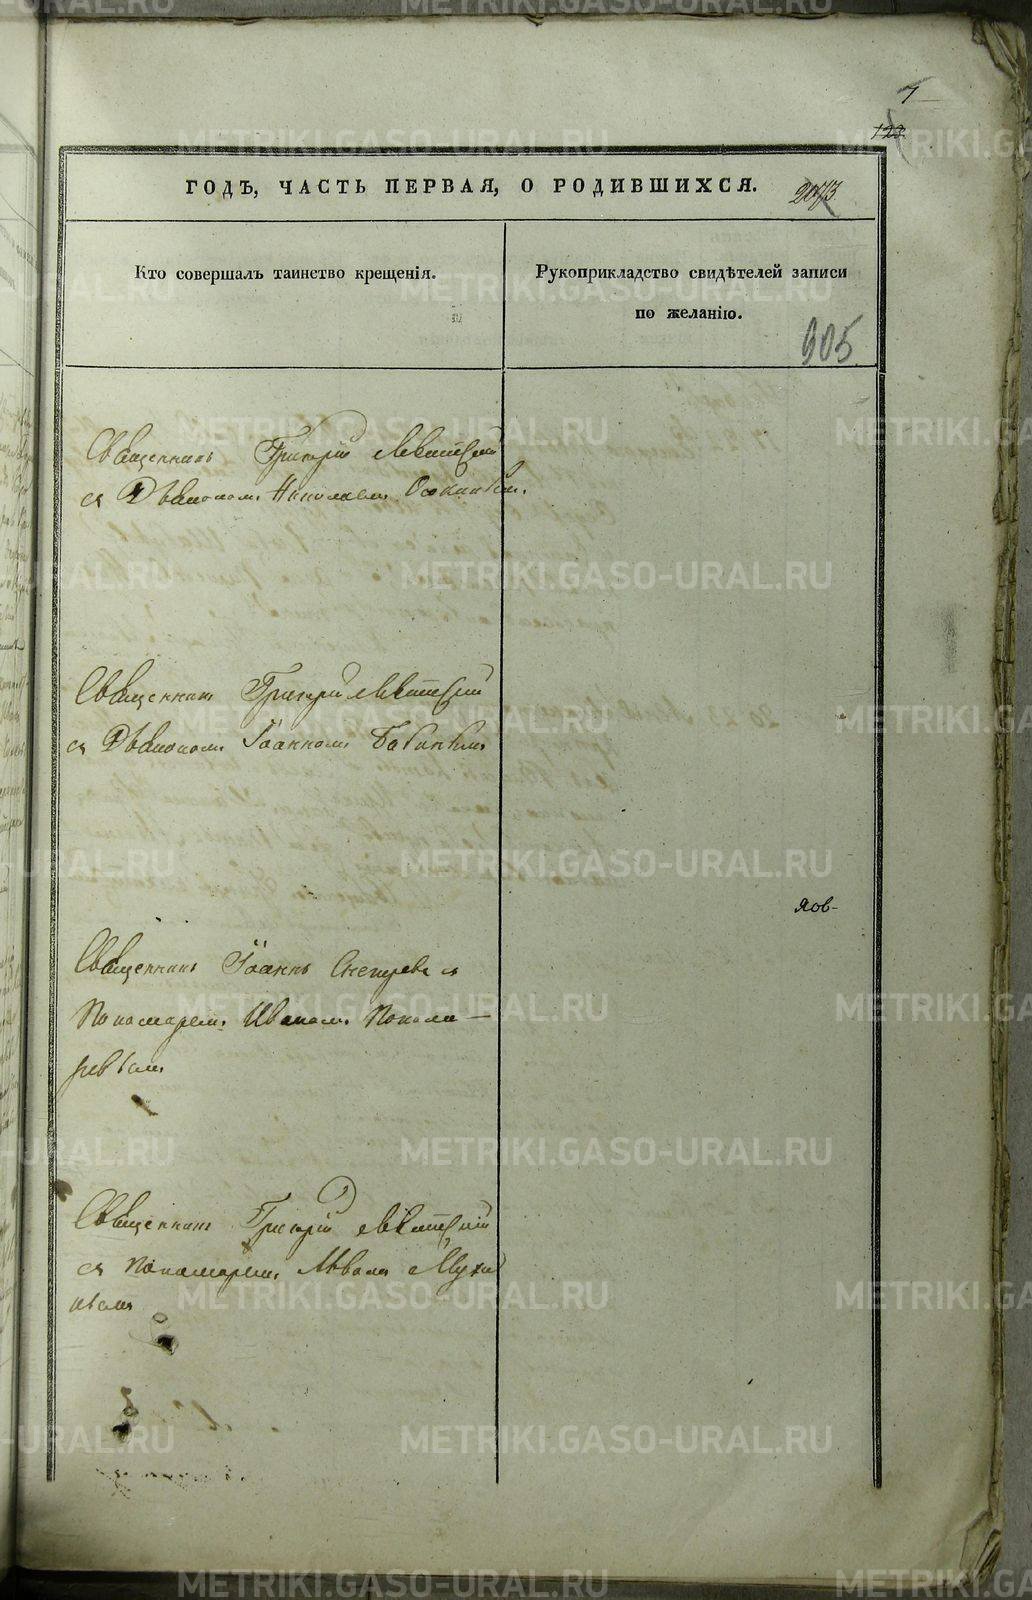 7
123
ГОДЪ, ЧАСТЬ ПЕРВАЯ, О РОДИВШИХСЯ.
Кто совершалъ таинство крещенія.
Рукоприкладство свидѣтелей записи
по желанію.
905
Священникъ Григорій Левитскій
съ Дьякономъ Николаемъ
Священникъ Григорій Левитскій
съ Дьякономъ Іоанномъ Бабинымъ
Священникъ Іоаннъ Снегиревъ съ
Пономаремъ Иваномъ Понома-
ревымъ
Священникъ Григорій Левитскій
съ Пономаремъ Львомъ Мухи
нымъ
METRIKI.GASO-URAL.RU